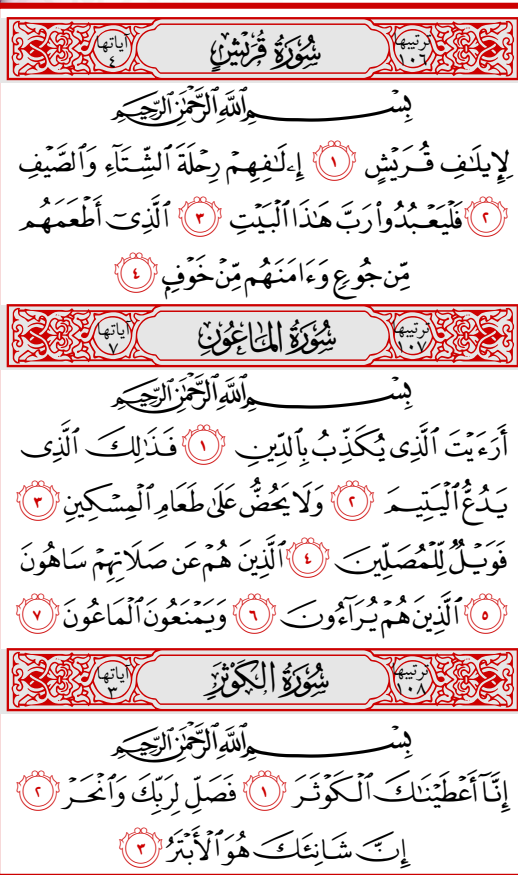 ترتيبها ١٠٦ سُورَةُ قُرَيْشٍ آياتها ٤
بِسْمِ ٱللَّهِ ٱلرَّحْمَٰنِ ٱلرَّحِيمِ
لِإِيلَٰفِ قُرَيْشٍ ١ إِۦلَٰفِهِمْ رِحْلَةَ ٱلشِّتَآءِ وَٱلصَّيْفِ
٢ فَلْيَعْبُدُوا۟ رَبَّ هَٰذَا ٱلْبَيْتِ ٣ ٱلَّذِىٓ أَطْعَمَهُم
مِّن جُوعٍ وَءَامَنَهُم مِّنْ خَوْفٍۭ ٤
ترتيبها ١٠٧ سُورَةُ المَاعُونِ آياتها ٧
بِسْمِ ٱللَّهِ ٱلرَّحْمَٰنِ ٱلرَّحِيمِ
أَرَءَيْتَ ٱلَّذِى يُكَذِّبُ بِٱلدِّينِ ١ فَذَٰلِكَ ٱلَّذِى
يَدُعُّ ٱلْيَتِيمَ ٢ وَلَا يَحُضُّ عَلَىٰ طَعَامِ ٱلْمِسْكِينِ ٣
فَوَيْلٌ لِّلْمُصَلِّينَ ٤ ٱلَّذِينَ هُمْ عَن صَلَاتِهِمْ سَاهُونَ
٥ ٱلَّذِينَ هُمْ يُرَآءُونَ ٦ وَيَمْنَعُونَ ٱلْمَاعُونَ ٧
ترتيبها ١٠٨ سُورَةُ الكَوْثَرِ آياتها ٣
بِسْمِ ٱللَّهِ ٱلرَّحْمَٰنِ ٱلرَّحِيمِ
إِنَّآ أَعْطَيْنَٰكَ ٱلْكَوْثَرَ ١ فَصَلِّ لِرَبِّكَ وَٱنْحَرْ ٢
إِنَّ شَانِئَكَ هُوَ ٱلْأَبْتَرُ ٣